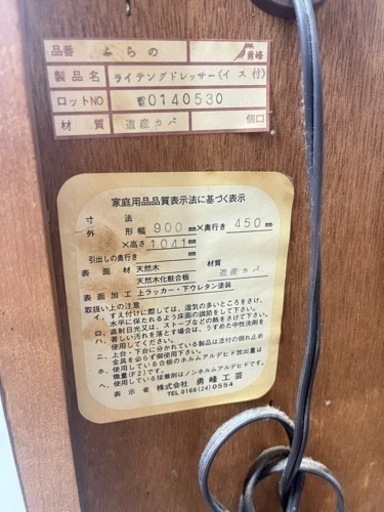 品番 ふらの 勇峰
製品名 ライティングドレッサー(イス付)
ロットNO 0140530
材質 道産カバ 個口
家庭用品品質表示法に基づく表示
寸法
外形 幅 900mm×奥行き 450mm
×高さ 1041mm
引出しの奥行き mm
表面材 天然木 材質
天然木化粧合板 道産カバ
表面加工 上ラッカー・下ウレタン塗装
取扱い上の注意
イ、すえ付けに際しては、湿気の多いところをさけ、
水平に保たれるよう床面の調節をして下さい。
ロ、直射日光又は、ストーブなどの熱をさけて下さい。
ハ、著しい汚れを落とす場合は、うすめた中性洗剤を
使用してください。
ニ、上台・下台に分かれている製品は添付の倒れ止め
金具を必らず御使用下さい。
ホ、使用している合板のホルムアルデヒド放出量は
微量(F2)です。
ヘ、使用している接着剤はノンホルムアルデヒドです。
表示者 株式会社 勇峰工芸
TEL0166(24)0554